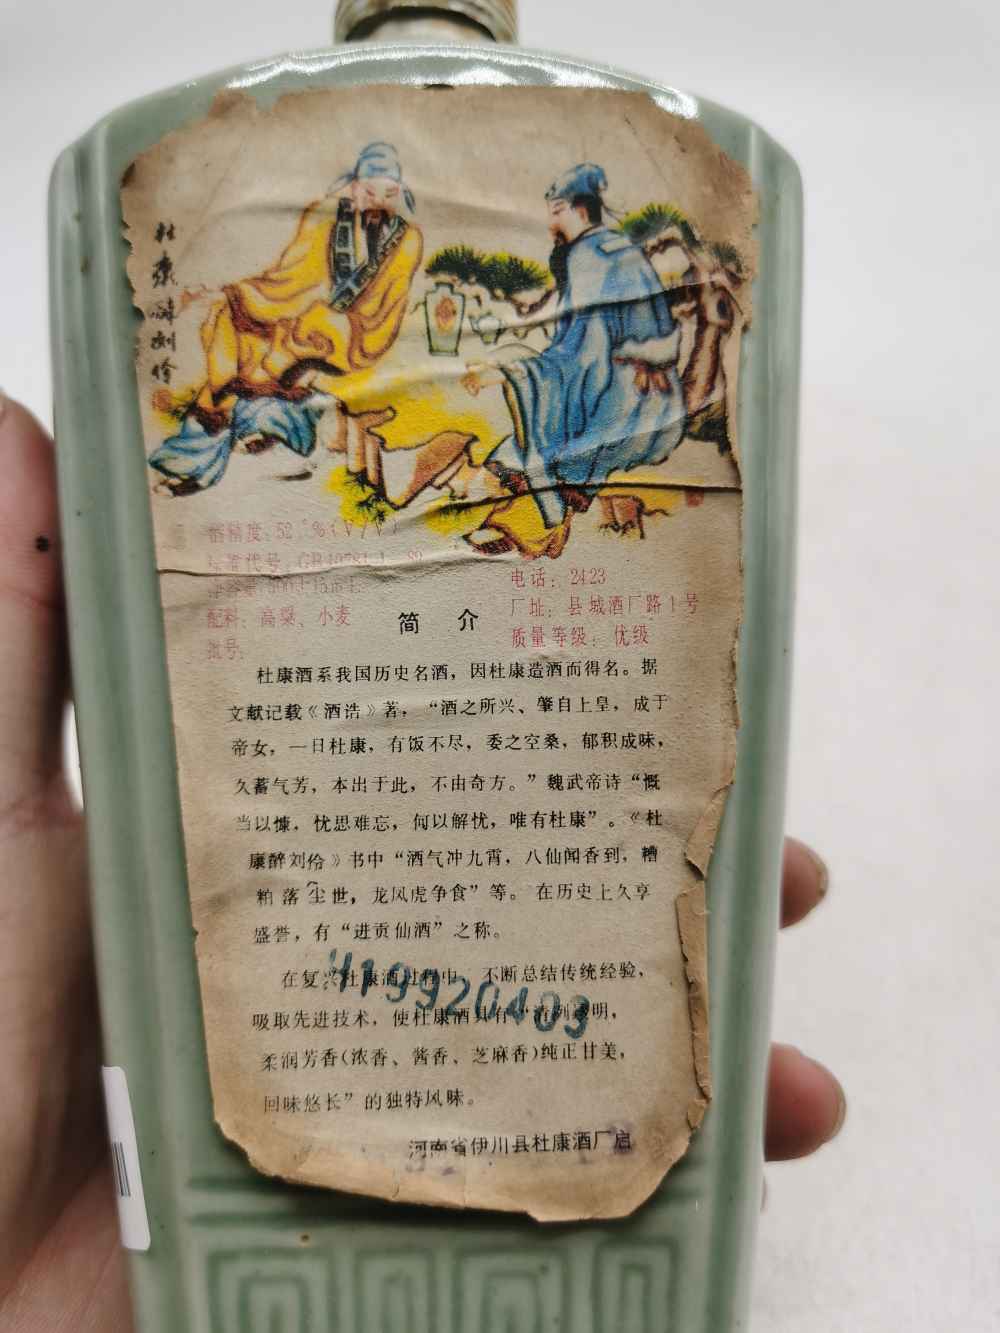 杜康醉刘伶
酒精度：52°%(V/V)
标准代号：GB10781.1-89
电话：2423
配料：高粱、小麦
厂址：县城酒厂路1号
批号：
质量等级：优级
简介
杜康酒系我国历史名酒，因杜康造酒而得名。据
文献记载《酒诰》著，“酒之所兴、肇自上皇，成于
帝女，一日杜康，有饭不尽，委之空桑，郁积成味，
久蓄气芳，本出于此，不由奇方。”魏武帝诗“慨
当以慷，忧思难忘，何以解忧，唯有杜康”。《杜
康醉刘伶》书中“酒气冲九霄，八仙闻香到，糟
粕落尘世，龙凤虎争食”等。在历史上久享
盛誉，有“进贡仙酒”之称。
在复兴杜康酒过程中，不断总结传统经验，
吸取先进技术，使杜康酒具有“清冽透明，
柔润芳香（浓香、酱香、芝麻香）纯正甘美，
回味悠长”的独特风味。
19920403
河南省伊川县杜康酒厂启